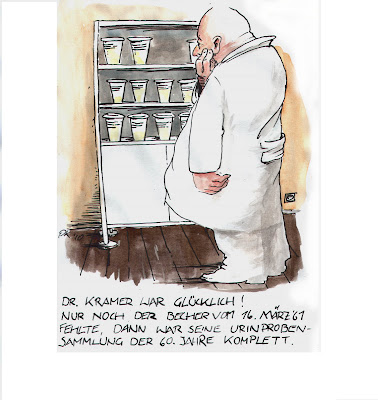 DR. KRAMER WAR GLÜCKLICH!
NUR NOCH DER BECHER VOM 16. MÄRZ '61
FEHLTE, DANN WAR SEINE URINPROBEN-
SAMMLUNG DER 60. JAHRE KOMPLETT.